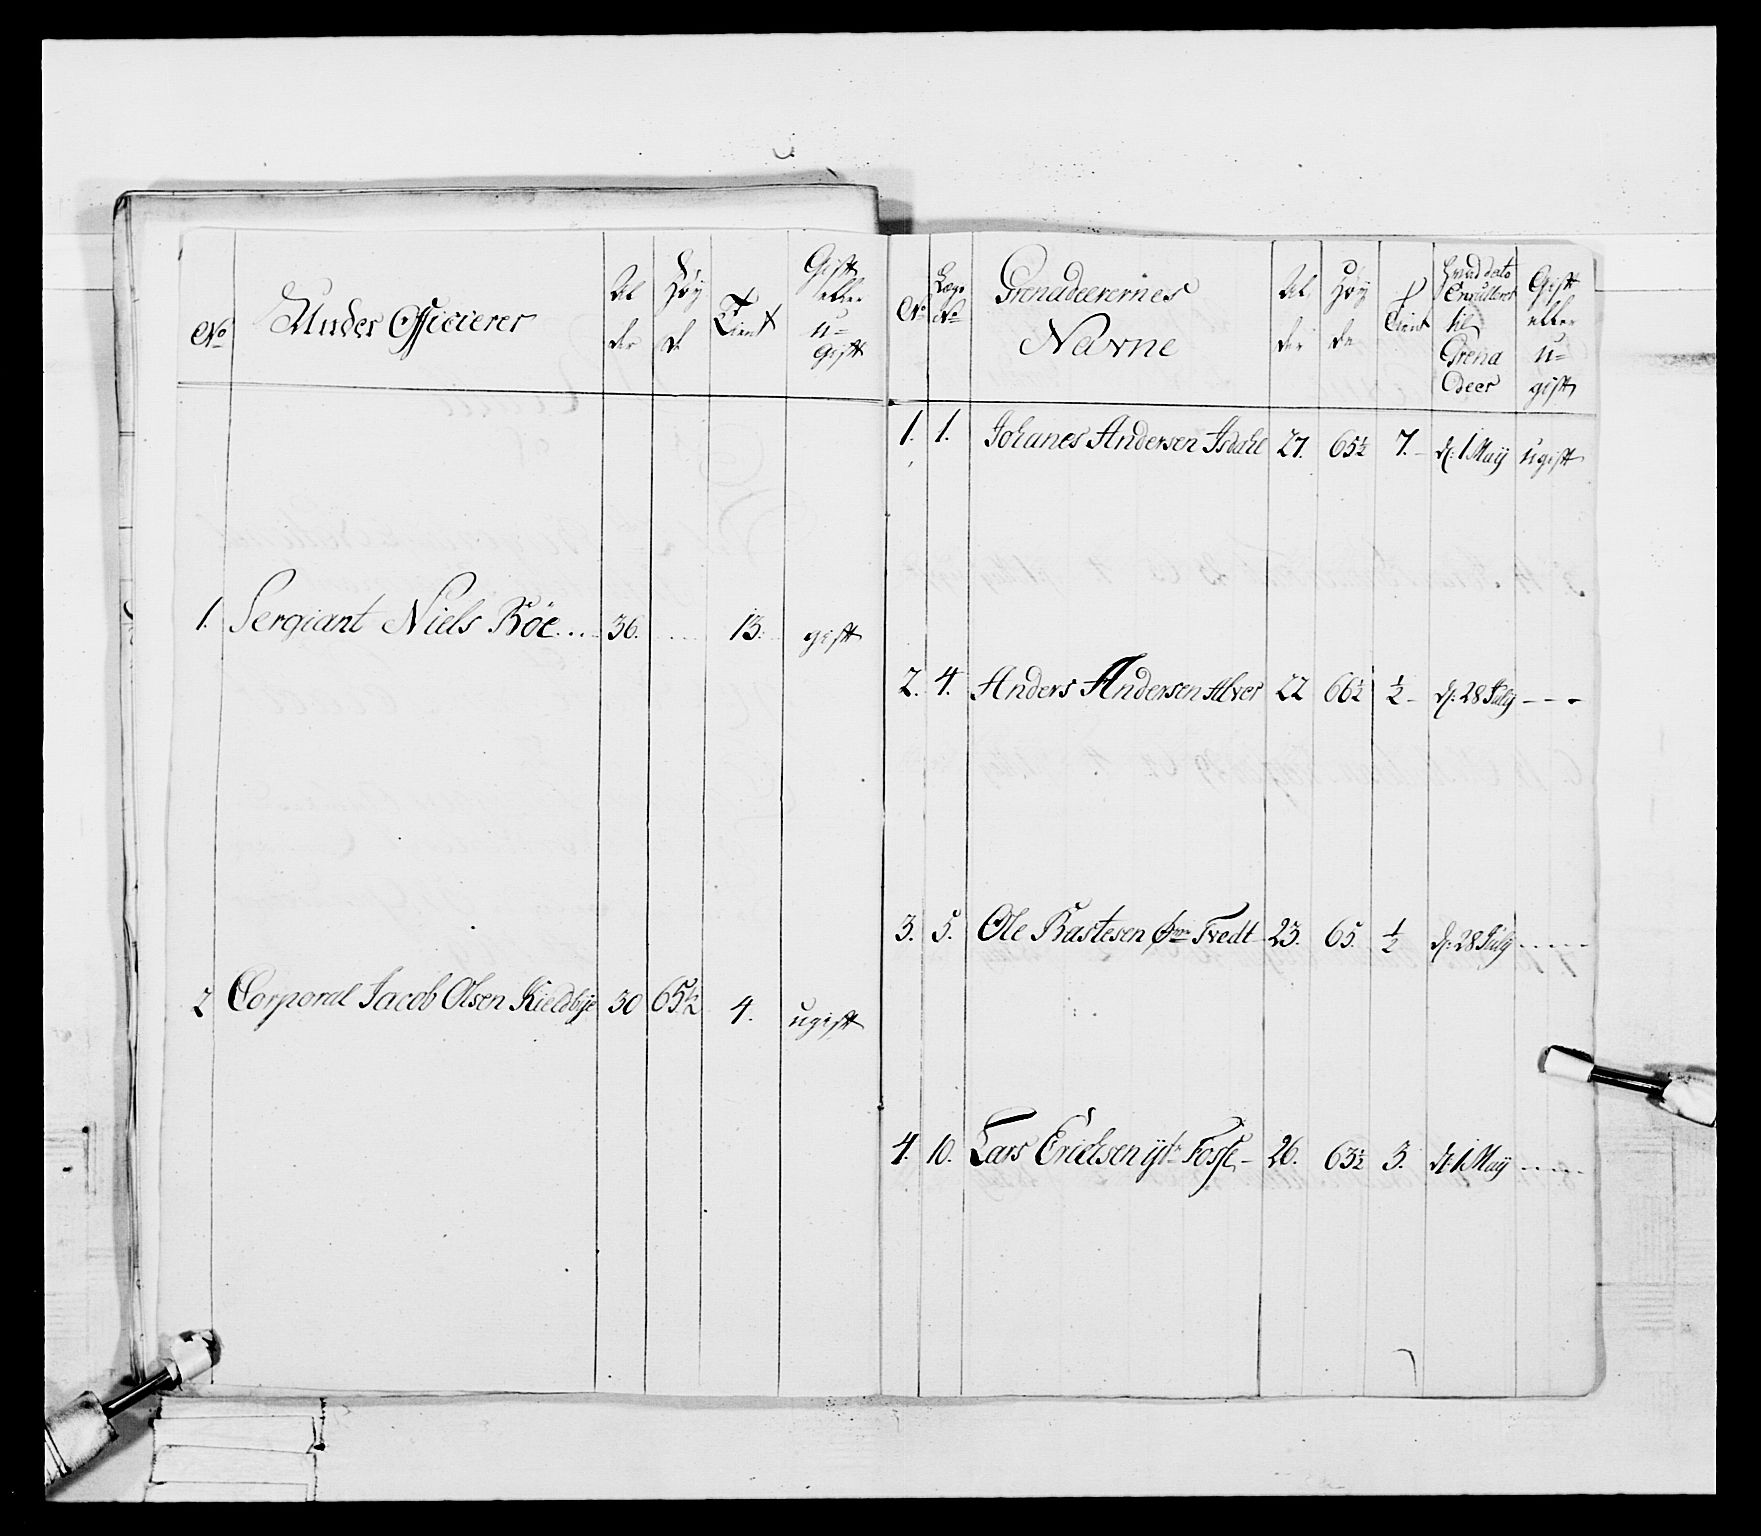 No
Under Officierer
Al
der
Høy
de
Tient
Gift
eller
u=
gift
1. Sergiant Niels Röe . . . 36. . . . . 13. gift
2 Corporal Jacob Olsen Kieldbÿe 30 65½ 4. ugift
No
Lægs
No
Grenadeerernes
Navne
Al
der
Høy
de
Tient
Hvad dato
Enrulleret
til
Grena
deer
Gift
eller
u=
gift
1. 1. Johanes Andersen Isdahl 27. 65½ 7. d: 1 Maÿ ugift
2. 4. Anders Andersen Alver 22 66½ ½ d: 28 July - - -
3. 5. Ole Rastesen Tvedt 23. 65. ½ d: 28 July - - - -
4. 10. Lars Erichsen Fosse 26. 63½ 3. d: 1 Maÿ - - - -